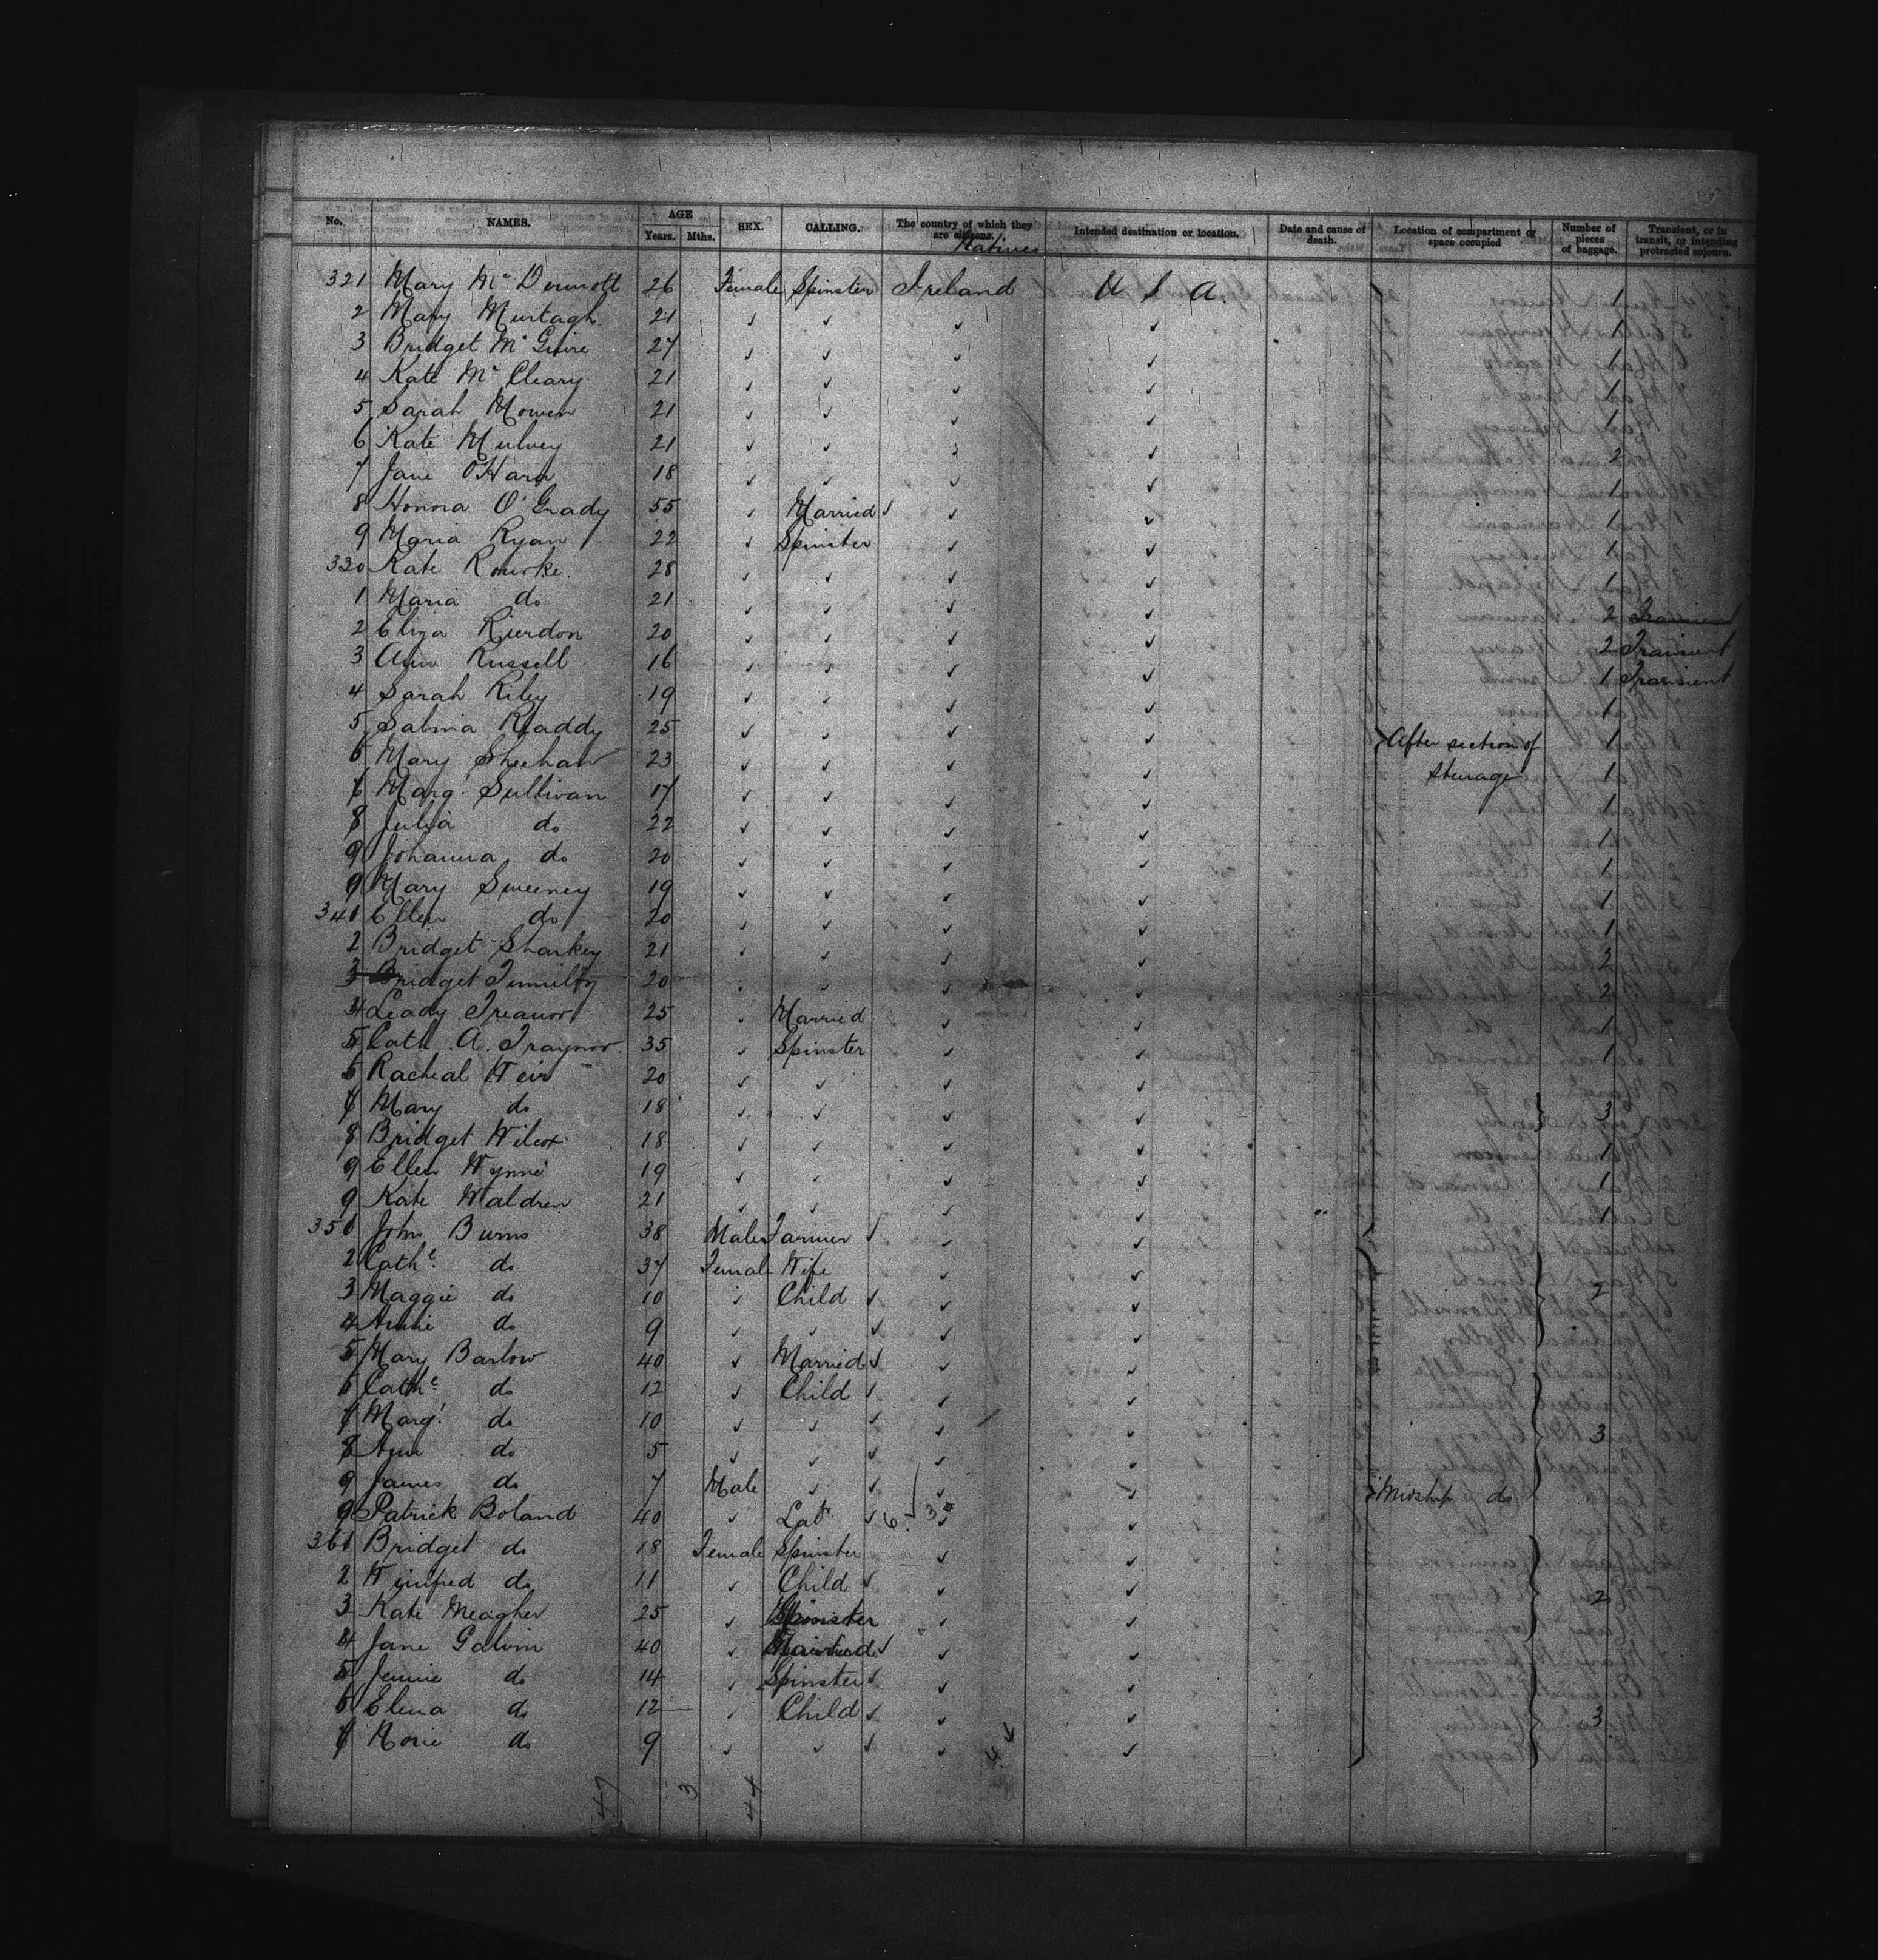 No. NAMES. AGE Years. Mths. SEX. CALLING. The country of which they are citizens. Natives Intended destination or location. Date and cause of death. Location of compartment or space occupied Number of pieces of baggage. Transient, or in transit, or intending protracted sojourn.
321 Mary McDermott 26 Female Spinster Ireland U S A. 1
2 Mary Murtagh 21 ✓ ✓ ✓ ✓ 1
3 Bridget McGuire 27 ✓ ✓ ✓ ✓ 1
4 Kate McCleary 21 ✓ ✓ ✓ ✓ 1
5 Sarah Mowen 21 ✓ ✓ ✓ ✓ 1
6 Kate Mulvey 21 ✓ ✓ ✓ ✓ 2
7 Jane O'Hara 18 ✓ ✓ ✓ ✓ 1
8 Honora O'Grady 55 ✓ Married ✓ ✓ ✓ 1
9 Maria Ryan 22 ✓ Spinster ✓ ✓ 1
330 Kate Rourke 28 ✓ ✓ ✓ ✓ 1
1 Maria do 21 ✓ ✓ ✓ ✓ 2 Transient
2 Eliza Rierdon 20 ✓ ✓ ✓ ✓ 2 Transient
3 Ann Russell 16 ✓ ✓ ✓ ✓ 1 Transient
4 Sarah Riley 19 ✓ ✓ ✓ ✓ 1
5 Sabina Roddy 25 ✓ ✓ ✓ ✓ After section of 1
6 Mary Sheehan 23 ✓ ✓ ✓ ✓ Steerage 1
7 Margt. Sullivan 17 ✓ ✓ ✓ ✓ 1
8 Julia do 22 ✓ ✓ ✓ ✓ 1
9 Johanna do 20 ✓ ✓ ✓ ✓ 1
9 Mary Sweeney 19 ✓ ✓ ✓ ✓ 1
341 Ellen do 20 ✓ ✓ ✓ ✓ 1
2 Bridget Sharkey 21 ✓ ✓ ✓ ✓ 2
3 Bridget 20 ✓ ✓ ✓ ✓ 2
4 Treanor 25 ✓ Married ✓ ✓ 1
5 Cath A. Traynor 35 ✓ Spinster ✓ ✓ 1
6 Racheal Weir 20 ✓ ✓ ✓ ✓
7 Mary do 18 ✓ ✓ ✓ ✓ 3
8 Bridget Wilcox 18 ✓ ✓ ✓ ✓ 1
9 Ellen Wynne 19 ✓ ✓ ✓ ✓ 1
9 Kate Waldren 21 ✓ ✓ ✓ ✓ 1
350 John Burns 38 Male Farmer ✓ ✓ ✓
2 Cathe. do 37 Female Wife ✓ ✓
3 Maggie do 10 ✓ Child ✓ ✓ ✓ 2
4 Annie do 9 ✓ ✓ ✓ ✓ ✓
5 Mary Barlow 40 ✓ Married ✓ ✓ ✓
6 Cathe. do 12 ✓ Child ✓ ✓ ✓
7 Margt. do 10 ✓ ✓ ✓ ✓ ✓
8 Ann do 5 ✓ ✓ ✓ ✓ ✓ 3
9 James do 7 Male ✓ ✓ ✓ ✓ Midship do
9 Patrick Boland 40 ✓ Labr ✓ 6 3 ✓ ✓
361 Bridget do 18 Female Spinster ✓ ✓
2 Winifred do 11 ✓ Child ✓ ✓ ✓
3 Kate Meagher 25 ✓ Spinster ✓ ✓ 2
4 Jane Galvin 40 ✓ Married ✓ ✓ ✓
5 Jennie do 14 ✓ Spinster ✓ ✓ ✓
6 Elena do 12 ✓ Child ✓ ✓ ✓ 3
7 Rosie do 9 ✓ ✓ ✓ ✓ ✓
47 3 44